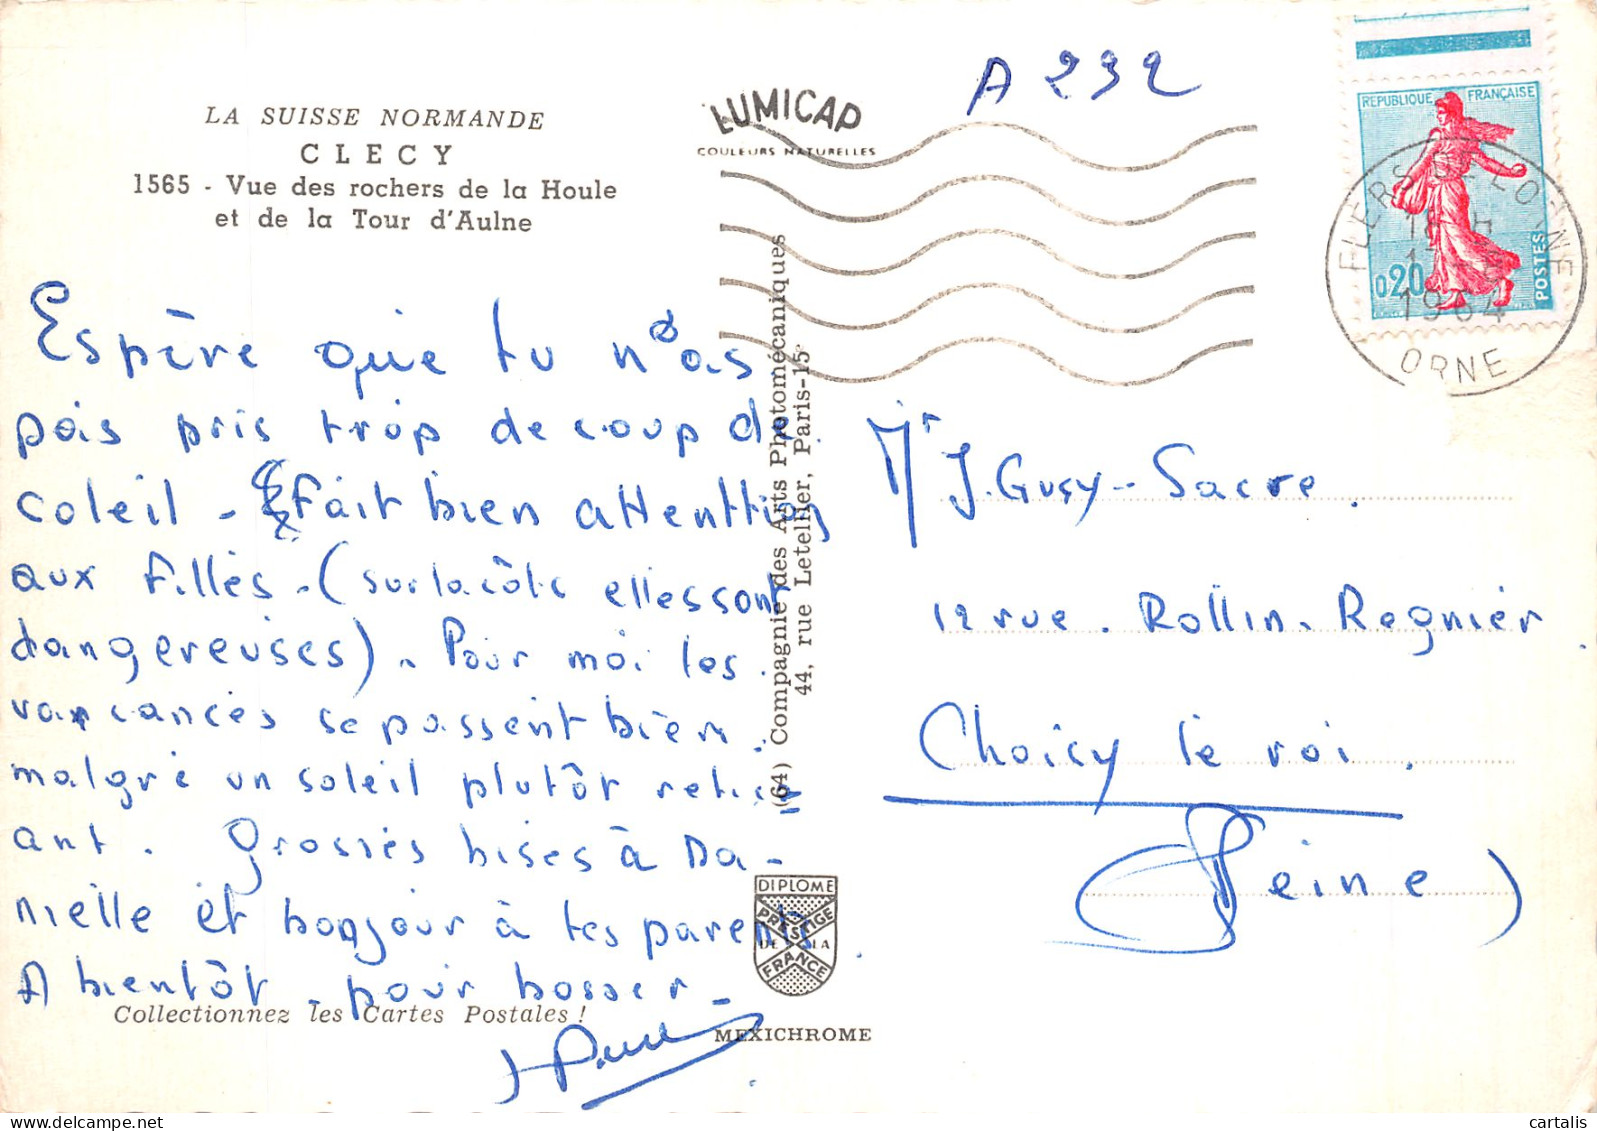 LA SUISSE NORMANDE
CLECY
1565 - Vue des rochers de la Houle
et de la Tour d'Aulne
Espère que tu n'as
pas pris trop de coup de
coleil - Fait bien attenttion
aux filles. (sur la côte elles sont
dangereuses). Pour moi les
vancances se passent bien.
malgré un soleil plutôt retis-
ant. Grosses bises à Da-
nielle et bonjour à tes parents.
A bientôt pour bosser -
Collectionnez les Cartes Postales !
LUMICAP
COULEURS NATURELLES
(64) Compagnie des Arts Photomécaniques
44, rue Letellier, Paris-15e
DIPLOME
PRESTIGE
DE LA
FRANCE
MEXICHROME
A 232
REPUBLIQUE FRANÇAISE
0,20
POSTES
FLERS DE L'ORNE
1964
ORNE
Mr J. Gusy-Sacre.
12 rue. Rollin. Regnier.
Choisy le roi.
(Seine)
cartalis